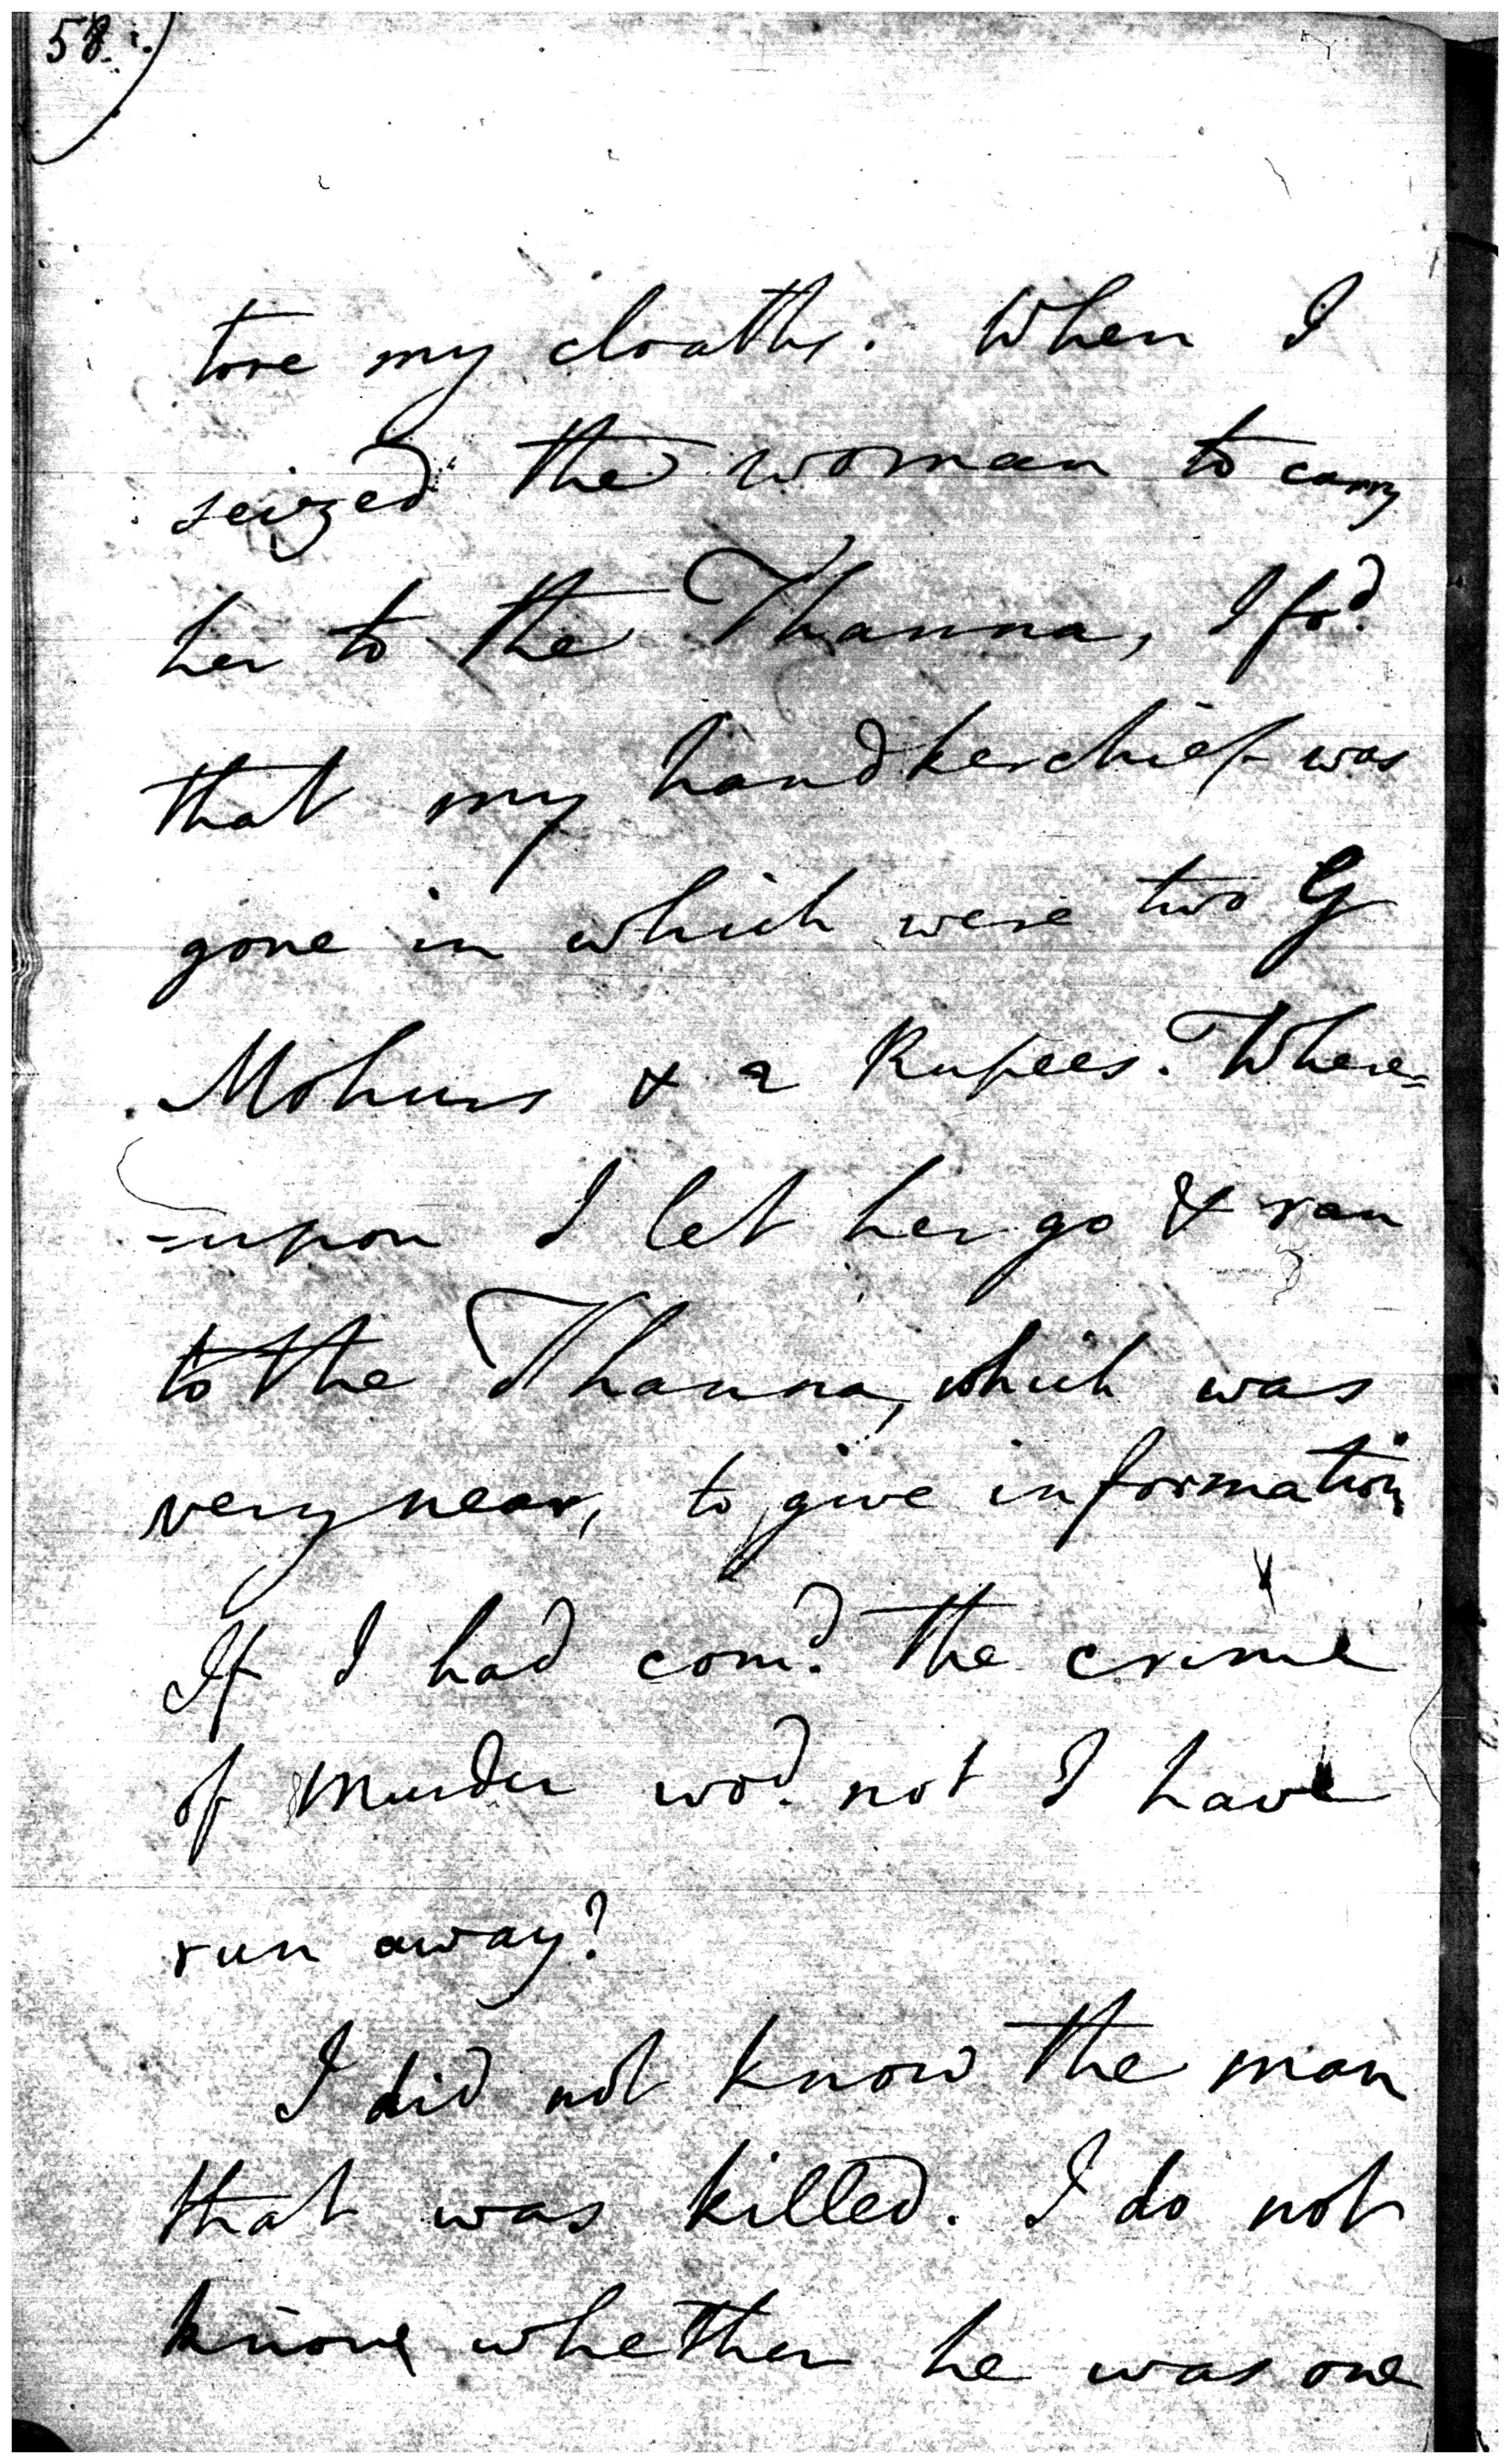 58.
tore my cloaths. When I
seized the woman to carry
her to the Thanna, I fod.
that my handkerchief was
gone in which were two G
Mohurs & 2 Rupees. Where=
=upon I let her go & ran
to the Thanna, which was
very near, to give information
If I had comd. the crime
of Murder wod. not I have
run away?
I did not know the man
that was killed. I do not
know whether he was one